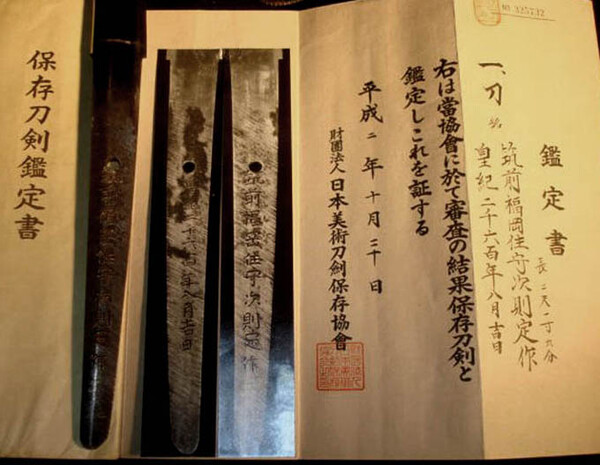 № 325732
鑑定書
一、刀 銘 筑前福岡住守次則定作
皇紀二千六百年八月吉日
長 二尺一寸六分
右は當協會に於て審査の結果保存刀剣と
鑑定しこれを証する
平成二年十月二十日
財團法人日本美術刀剣保存協會
筑前福岡住守次則定作
六百年八月吉日
保存刀剣鑑定書